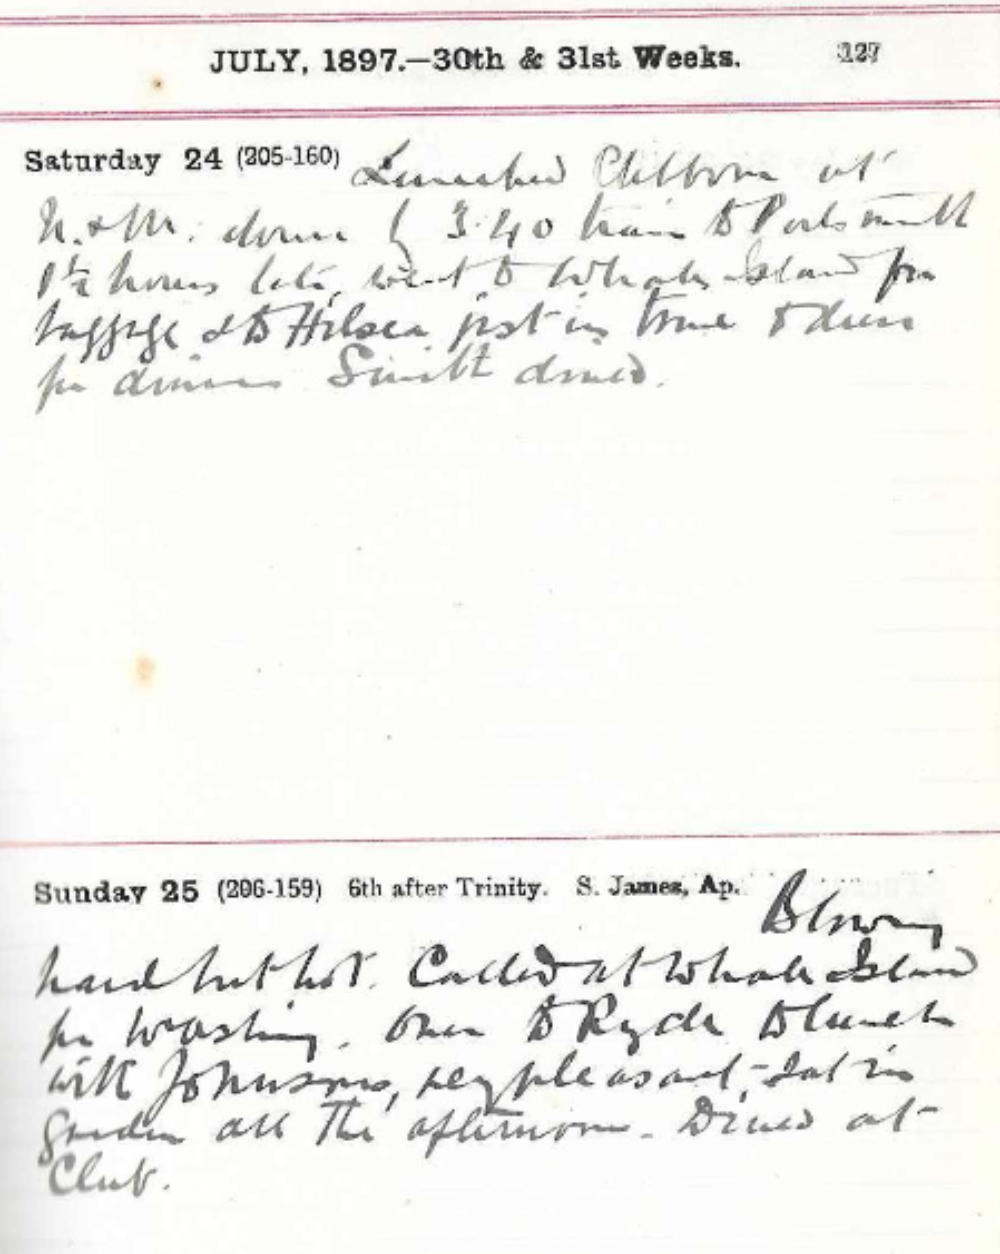 JULY, 1897.—30th & 31st Weeks. 127
Saturday 24 (205-160) Lunched Clibborn at
N. & M. down by 3.40 train to Portsmouth
1½ hours late, went to Whale Island for
baggage & to Hilsea just in time to dress
for dinner Smith dined.
Sunday 25 (206-159) 6th after Trinity. S. James, Ap. Blowing
hard but hot. Called at Whale Island
for washing. Over to Ryde to lunch
with Johnsons, very pleasant, sat in
garden all the afternoon. Dined at
Club.